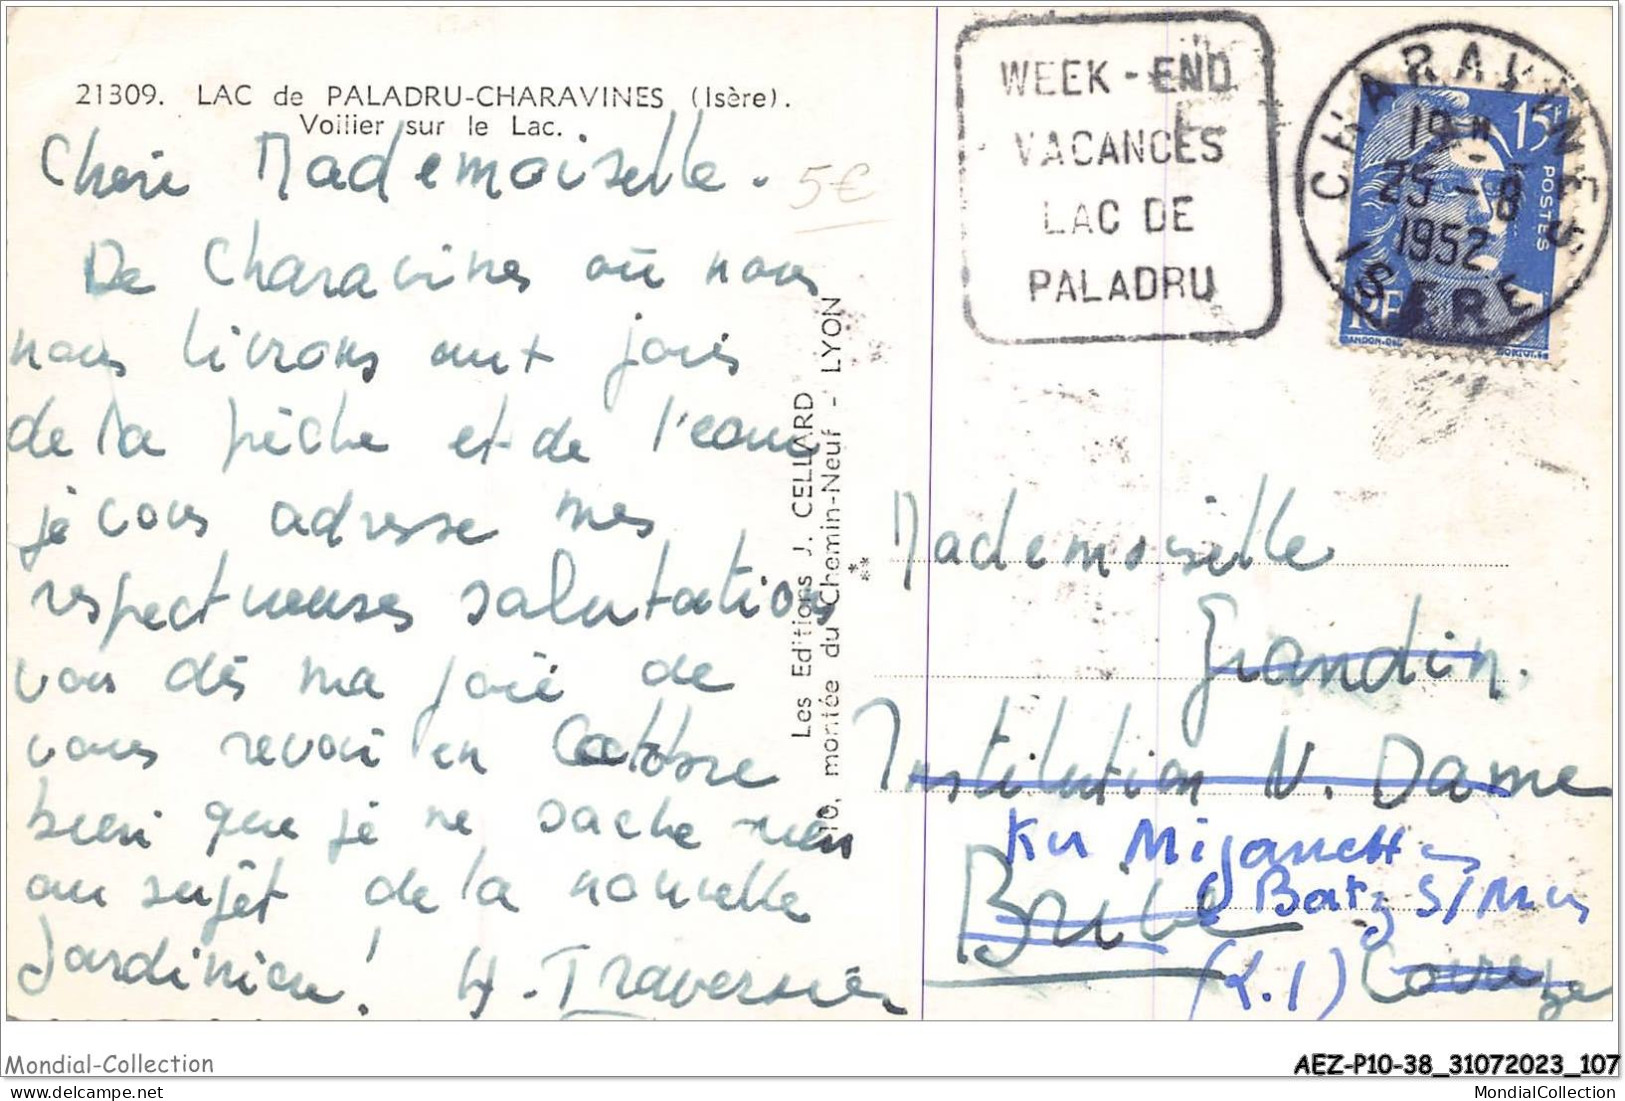 21309. LAC de PALADRU-CHARAVINES (Isère).
Voilier sur le Lac.
Chère Mademoiselle.
5€
De Charavines où nous
nous livrons aux joies
de la pêche et de l'eau
je vous adresse mes
respectueuses salutations
vous dis ma joie de
vous revoir en Octobre
bien que je ne sache rien
au sujet de la nouvelle
Jardinière! H. Traversier
Les Editions J. CELLARD
10, montée du Chemin-Neuf - LYON
WEEK-END
VACANCES
LAC DE
PALADRU
CHARAVINES
19H
25-8
1952
ISERE
15F
POSTES
RF
Mademoiselle
Grandin.
Institution N. Dame
Ker Miganettes
Brive
Batz S/Mer
(L.I) Corrèze
Mondial-Collection
AEZ-P10-38_31072023_107
MondialCollection
MondialCollection